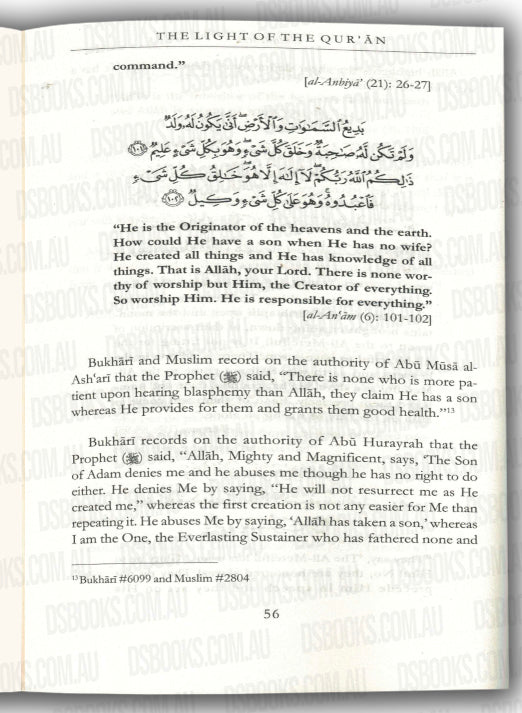 THE LIGHT OF THE QUR'ĀN
command.”
[al-Anbiyā’ (21): 26-27]
بَدِيعُ ٱلسَّمَٰوَٰتِ وَٱلْأَرْضِ أَنَّىٰ يَكُونُ لَهُۥ وَلَدٌ
وَلَمْ تَكُن لَّهُۥ صَٰحِبَةٌ وَخَلَقَ كُلَّ شَىْءٍ وَهُوَ بِكُلِّ شَىْءٍ عَلِيمٌ ۝١٠١
ذَٰلِكُمُ ٱللَّهُ رَبُّكُمْ لَآ إِلَٰهَ إِلَّا هُوَ خَٰلِقُ كُلِّ شَىْءٍ
فَٱعْبُدُوهُ وَهُوَ عَلَىٰ كُلِّ شَىْءٍ وَكِيلٌ ۝١٠٢
“He is the Originator of the heavens and the earth.
How could He have a son when He has no wife?
He created all things and He has knowledge of all
things. That is Allāh, your Lord. There is none wor-
thy of worship but Him, the Creator of everything.
So worship Him. He is responsible for everything.”
[al-An‘ām (6): 101-102]
Bukhārī and Muslim record on the authority of Abū Mūsā al-
Ash‘arī that the Prophet (ﷺ) said, “There is none who is more pa-
tient upon hearing blasphemy than Allāh, they claim He has a son
whereas He provides for them and grants them good health.”¹³
Bukhārī records on the authority of Abū Hurayrah that the
Prophet (ﷺ) said, “Allāh, Mighty and Magnificent, says, ‘The Son
of Adam denies me and he abuses me though he has no right to do
either. He denies Me by saying, “He will not resurrect me as He
created me,” whereas the first creation is not any easier for Me than
repeating it. He abuses Me by saying, ‘Allāh has taken a son,’ whereas
I am the One, the Everlasting Sustainer who has fathered none and
¹³ Bukhārī #6099 and Muslim #2804
56
DSBOOKS.COM.AU